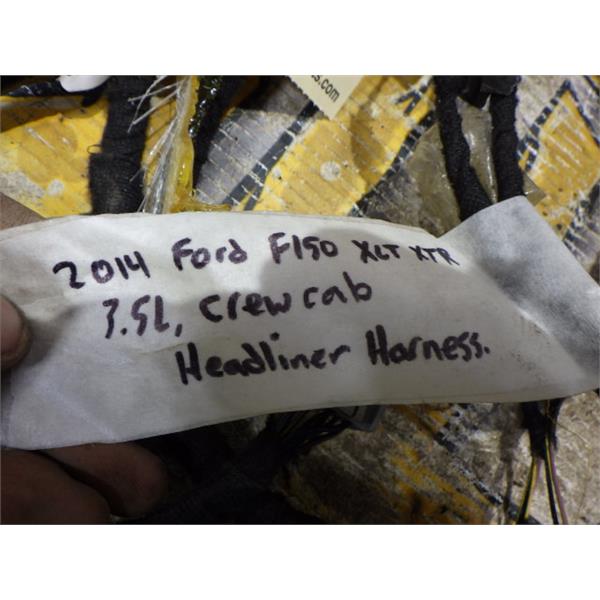 s.com
2014 Ford F150 XLT XTR
3.5L, Crew cab
Headliner Harness.